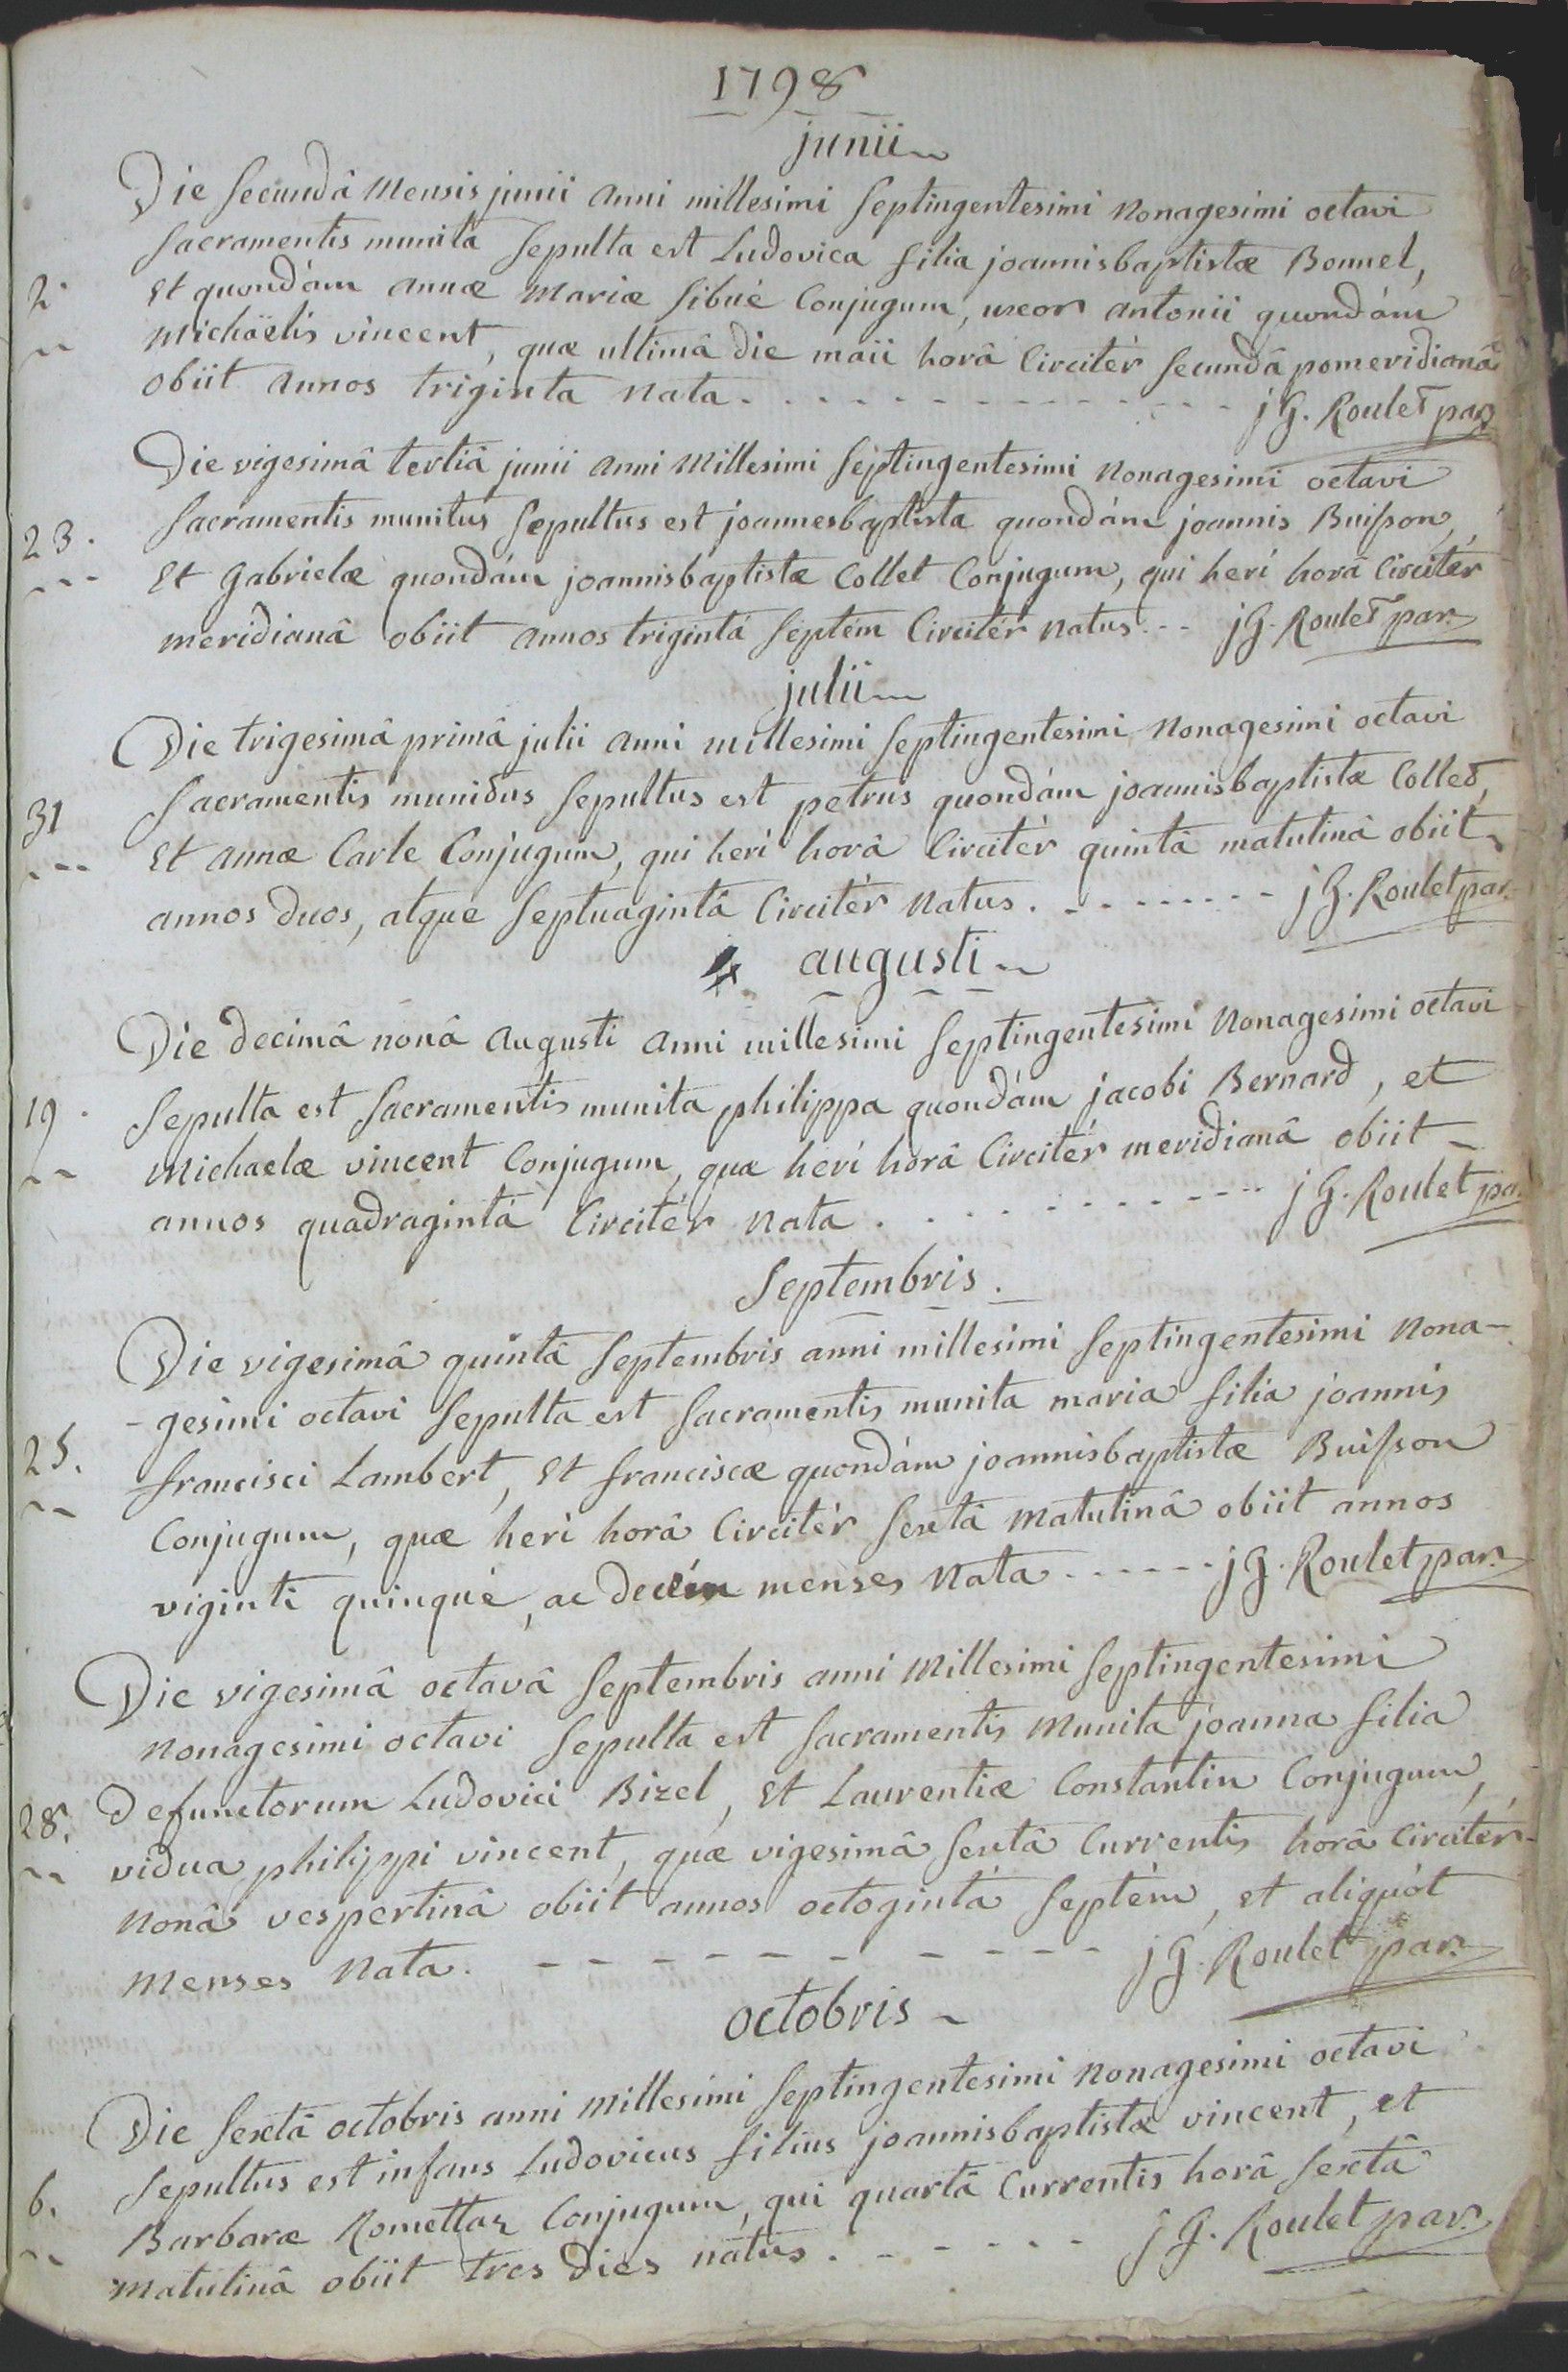 1798
junii
Die secundâ mensis junii anni millesimi septingentesimi nonagesimi octavi
sacramentis munita sepulta est Ludovica filia joannisbaptistæ Bonnel,
2. et quondám annæ mariæ sibué conjugum, uxor antonii quondám
michäelis vincent, quæ ultimâ die maii horâ circitér secundâ pomeridianâ
obiit annos triginta nata. - - - - - - - - - - - - jG. Roulet par.
Die vigesimâ tertiâ junii anni millesimi septingentesimi nonagesimi octavi
23. sacramentis munitus sepultus est joannesbaptista quondám joannis Buisson,
et gabrielæ quondám joannisbaptistæ Collet conjugum, qui herí horâ circitér
meridianâ obiit annos trigintá septém circitér natus. - - jG. Roulet par.
julii
Die trigesimâ primâ julii anni millesimi septingentesimi nonagesimi octavi
31 sacramentis munidus sepultus est petrus quondám joannisbaptistæ Colled,
et annæ Carle conjugum, qui herí horâ circitér quintâ matutinâ obiit
annos duos, atque septuagintâ circitér natus. - - - - - - - - jG. Roulet par.
augusti
Die decimâ nonâ augusti anni millesimi septingentesimi nonagesimi octavi
19. sepulta est sacramentis munita philippa quondám jacobi Bernard, et
michaelæ vincent conjugum, quæ herí horâ circitér meridianâ obiit
annos quadragintá circitér nata. - - - - - - - - - - jG. Roulet pa.
septembris.
Die vigesimâ quintâ septembris anni millesimi septingentesimi nona-
-gesimi octavi sepulta est sacramentis munita maria filia joannis
25. francisci Lambert, et franciscæ quondám joannisbaptistæ Buisson
conjugum, quæ herì horâ circitér sextâ matutinâ obiit annos
viginti quinqué, ac decém menses nata - - - - - - jG. Roulet par.
Die vigesimâ octavâ septembris anni millesimi septingentesimi
nonagesimi octavi sepulta est sacramentis munita joanna filia
28. defunctorum Ludovici Bizel, et Laurentiæ Constantin conjugum,
vidua philippi vincent, quæ vigesimâ sextâ currentis horâ circitér
nonâ vespertinâ obiit annos octogintá septém, et aliquót
menses nata. - - - - - - - - - - - jG. Roulet par.
octobris
Die sextâ octobris anni millesimi septingentesimi nonagesimi octavi
sepultus est infans Ludovicus filius joannisbaptistæ vincent, et
6. Barbaræ Romettaz conjugum, qui quartâ currentis horâ sextâ
matutinâ obiit tres dies natus. - - - - - - jG. Roulet par.